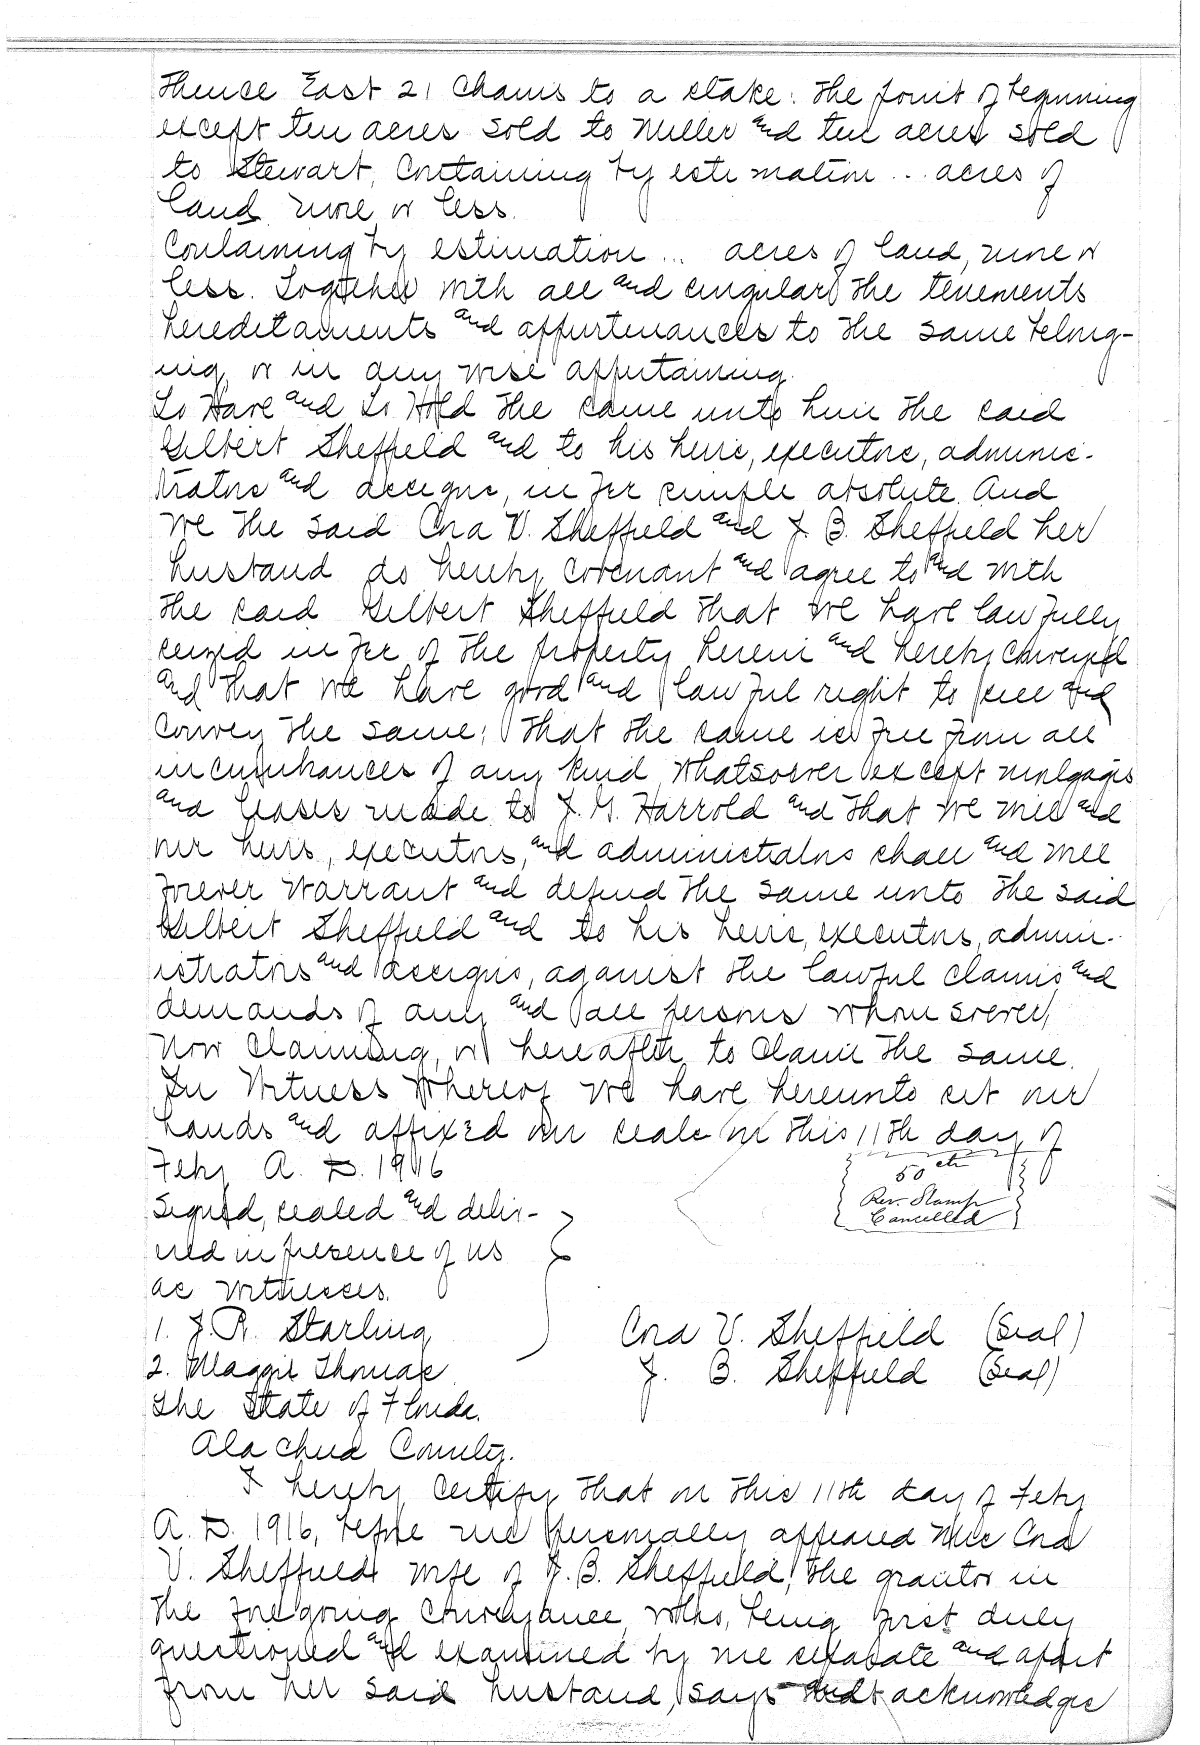 Thence East 21 Chains to a stake: the point of beginning
except ten acres sold to Miller and ten acres sold
to Stewart, Containing by estimation .. acres of
land more or less.
Containing by estimation ... acres of land, more or
less. Together with all and singular the tenements
hereditaments and appurtenances to the same belong-
ing, or in any wise appertaining.
To Have and To Hold the same unto him the said
Gilbert Sheffield and to his heirs, executors, adminis-
trators and assigns, in fee simple absolute. And
we the said Cora V. Sheffield and J. B. Sheffield her
husband do hereby covenant and agree to and with
the said Gilbert Sheffield that we have lawfully
seized in fee of the property herein and hereby conveyed
and that we have good and lawful right to sell and
convey the same; that the same is free from all
incumbrances of any kind whatsoever except mortgages
and leases made to J. G. Harrold and that we will and
our heirs, executors, and administrators shall and will
forever warrant and defend the same unto the said
Gilbert Sheffield and to his heirs, executors, admin-
istrators and assigns, against the lawful claims and
demands of any and all persons whom soever,
now claiming, or hereafter to claim the same.
In Witness Whereof we have hereunto set our
hands and affixed our seals on this 11th day of
Feby A. D. 1916
50 cts
Rev. Stamp
Cancelled
Signed, sealed and deliv-
ered in presence of us
as witnesses.
1. J. R. Starling
Cora V. Sheffield (Seal)
2. Maggie Thomas
J. B. Sheffield (Seal)
The State of Florida.
Alachua County.
I hereby certify that on this 11th day of Feby
A. D. 1916, before me personally appeared Mrs Cora
V. Sheffield wife of J. B. Sheffield, the grantor in
the foregoing conveyance, who, being first duly
questioned and examined by me separate and apart
from her said husband, says and acknowledges